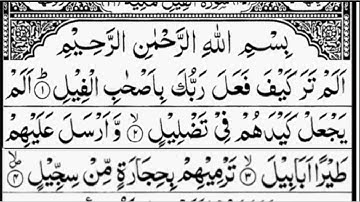 بِسْمِ اللهِ الرَّحْمٰنِ الرَّحِيْمِ
اَلَمْ تَرَ كَيْفَ فَعَلَ رَبُّكَ بِاَصْحٰبِ الْفِيْلِ ۝۱ اَلَمْ
يَجْعَلْ كَيْدَهُمْ فِيْ تَضْلِيْلٍ ۝۲ وَّاَرْسَلَ عَلَيْهِمْ
طَيْرًا اَبَابِيْلَ ۝۳ تَرْمِيْهِمْ بِحِجَارَةٍ مِّنْ سِجِّيْلٍ ۝۴